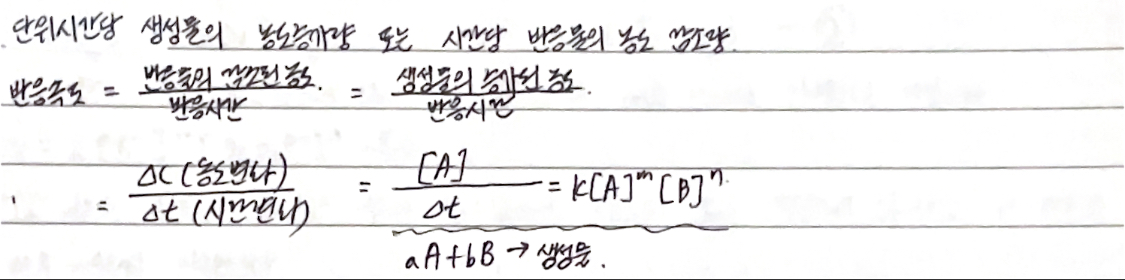 단위시간당 생성물의 농도증가량 또는 시간당 반응물의 농도 감소량.
반응속도 = 반응물의 감소된 농도. / 반응시간 = 생성물의 증가된 농도. / 반응시간
= ΔC (농도변화) / Δt (시간변화) = [A] / Δt = K[A]^m [B]^n.
aA+bB → 생성물.